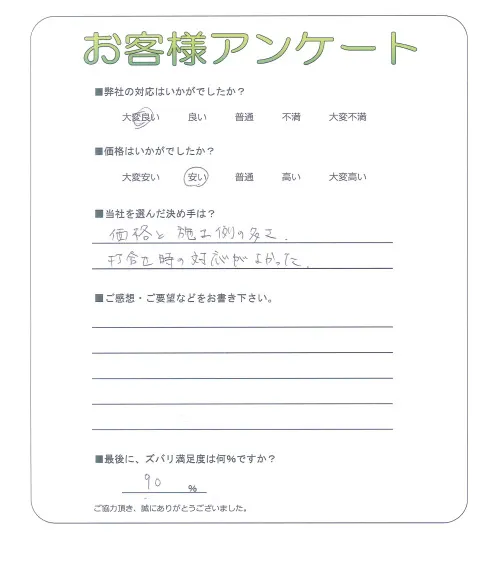 お客様アンケート
■弊社の対応はいかがでしたか？
大変良い 良い 普通 不満 大変不満
■価格はいかがでしたか？
大変安い 安い 普通 高い 大変高い
■当社を選んだ決め手は？
価格と施工例の多さ.
打合せ時の対応がよかった.
■ご感想・ご要望などをお書き下さい。
■最後に、ズバリ満足度は何％ですか？
90 ％
ご協力頂き、誠にありがとうございました。